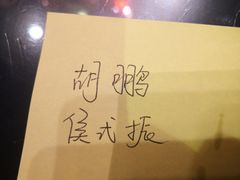 胡鹏
侯式振